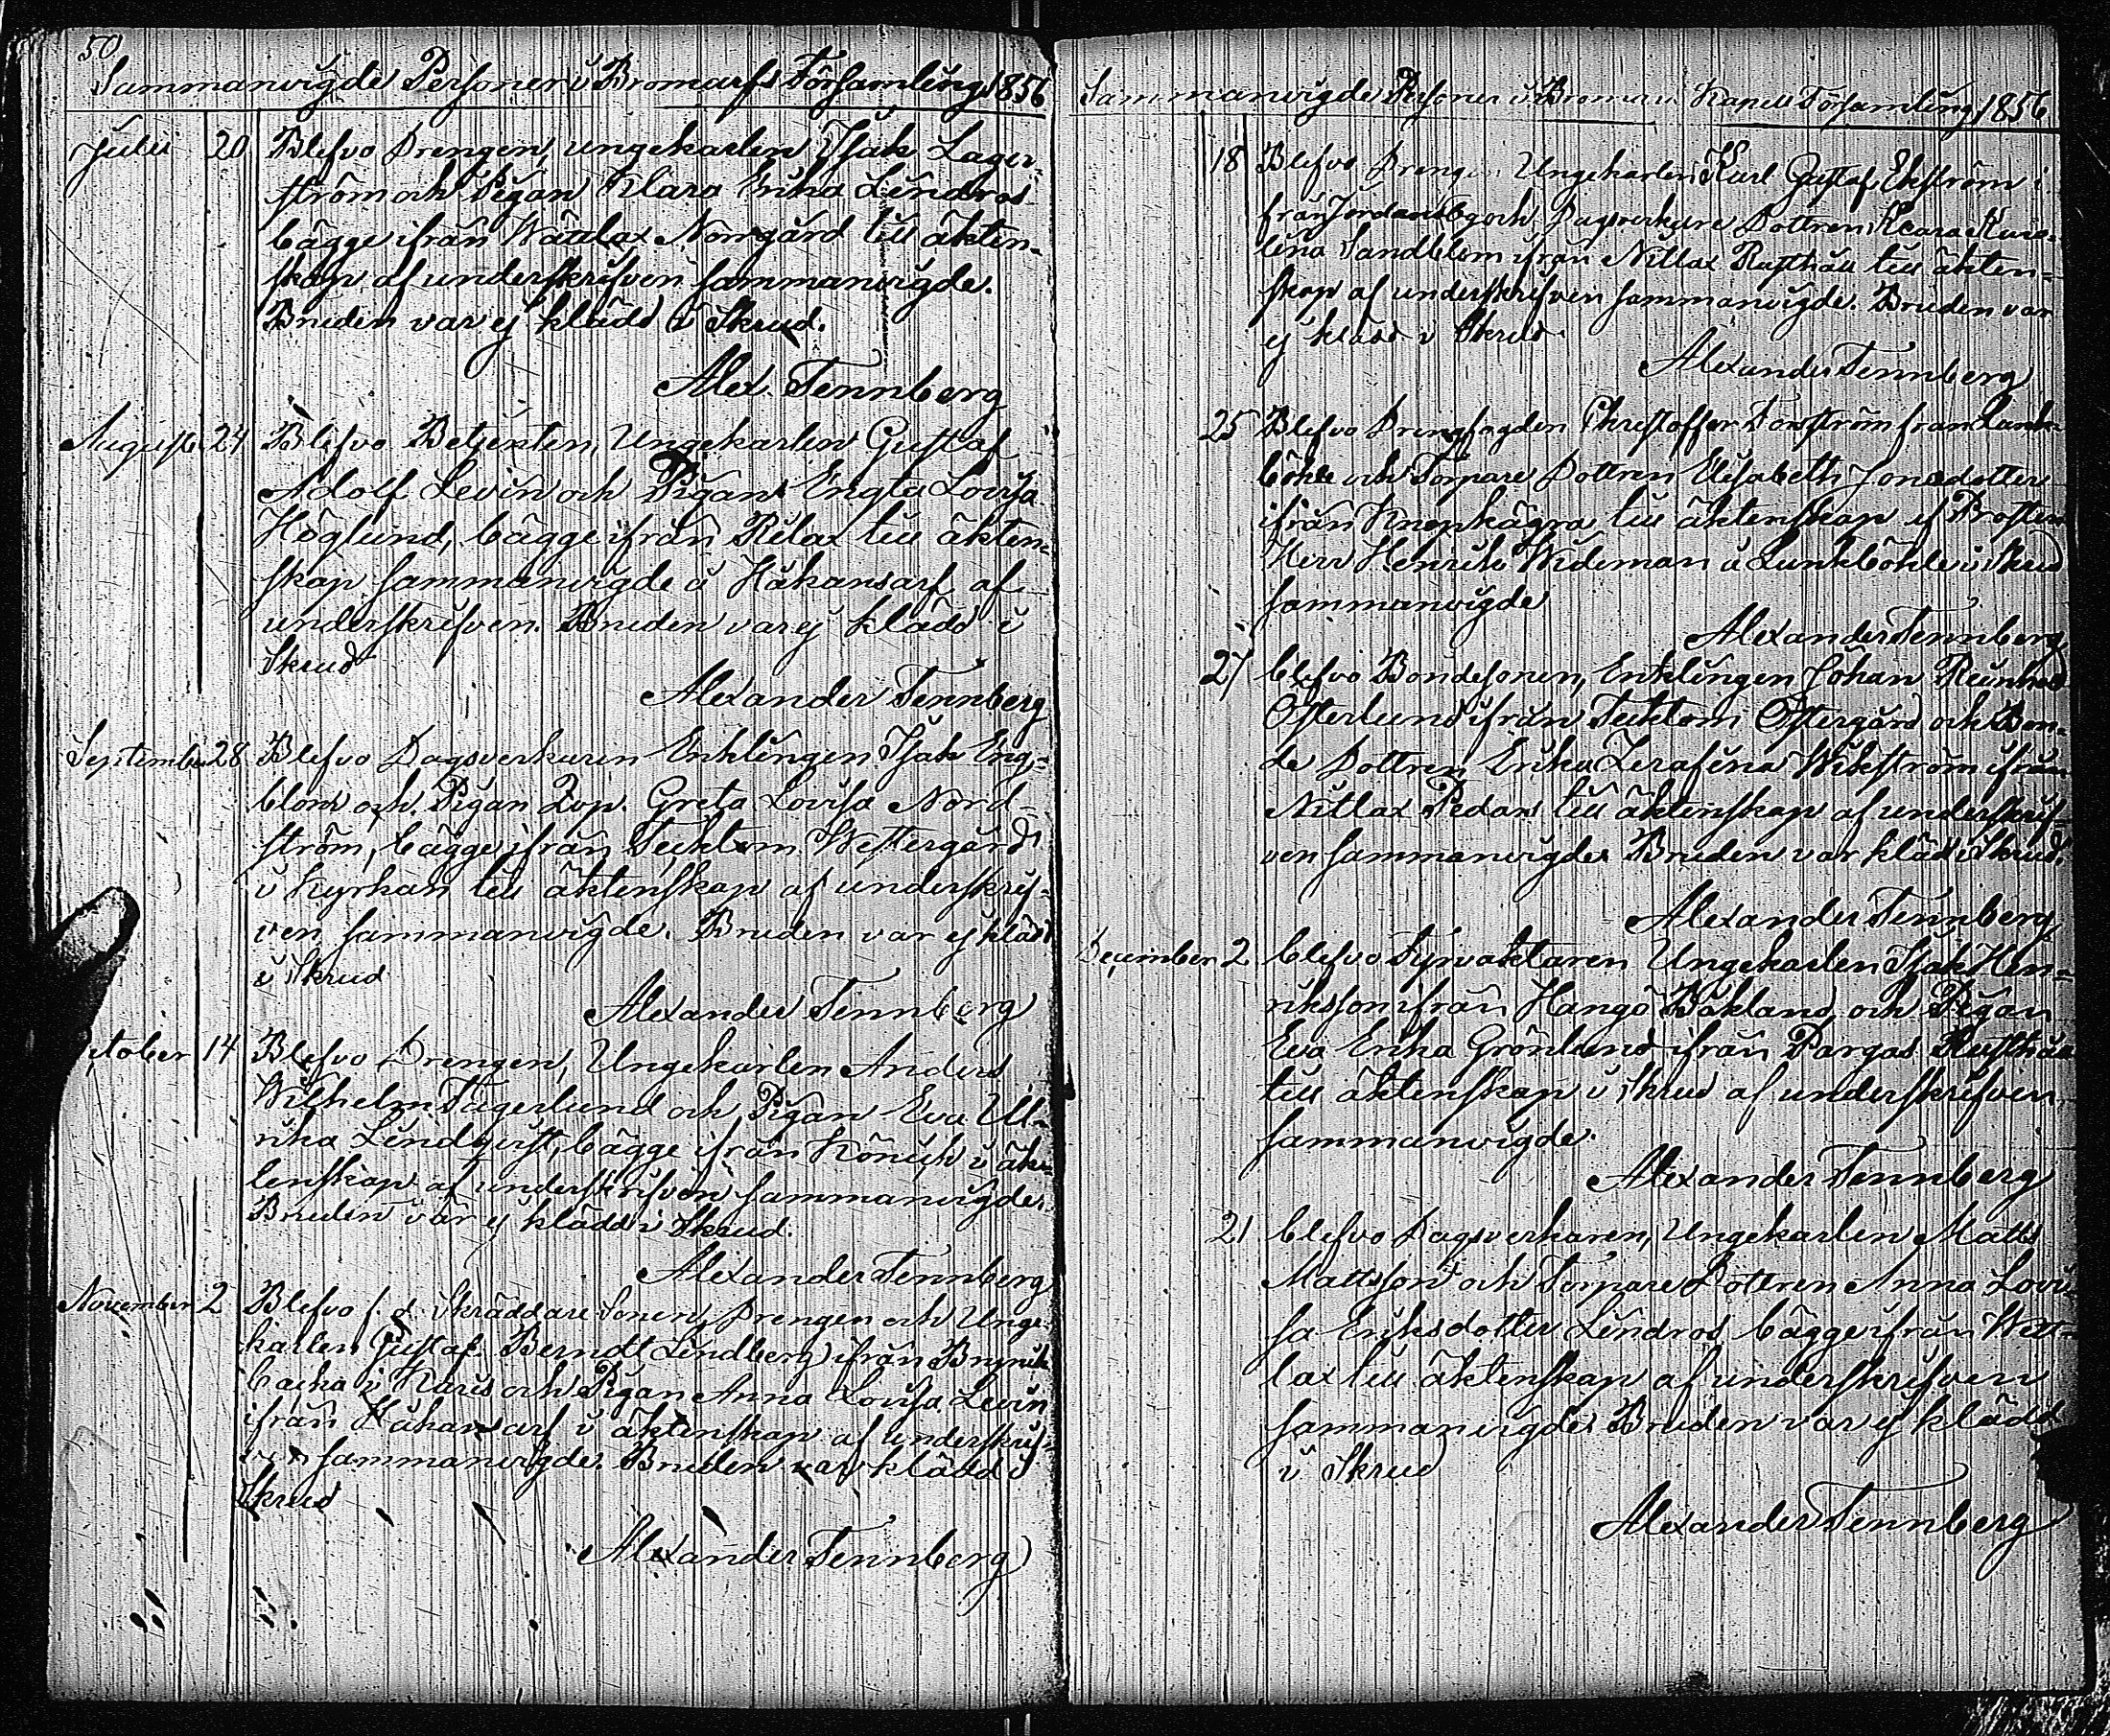 50
Sammanvigde Personer i Bromarf Församling 1856
Julii 20 Blefvo Drengen, ungekarlen Isak Lager
ström och Pigan Klara Erika Lindros
bägge ifrån Wättlax Norrgård till äkten-
skap af underskrifven sammanvigde.
Bruden var ej klädd i Skrud.
Alex. Tennberg
Augusti 24 Blefvo Betjenten, Ungekarlen Gustaf
Adolf Levin och Pigan Engla Lovisa
Höglund, bägge ifrån Rilax till äkten-
skap sammanvigde å Håkansarf af
underskrifven. Bruden var ej klädd i
Skrud
Alexander Tennberg
September 28 Blefvo Dagsverkaren Enklingen Isak Eng-
blom och Pigan Greta Lovisa Nord-
ström, bägge ifrån Tecktom Westergård
i Kyrkan till äktenskap af underskrif-
ven sammanvigde. Bruden var ej klädd
i Skrud
Alexander Tennberg
October 14 Blefvo Drengen, Ungekarlen Anders
Wilhelm Fagerlund och Pigan Eva Ul-
rika Lindqvist, bägge ifrån i äk-
tenskap af underskrifven sammanvigde.
Bruden var ej klädd i Skrud.
Alexander Tennberg
November 2 Blefvo f. d. Skräddare Sonen, Drengen och Unge-
karlen Gustaf Berndt Lindberg ifrån
backa i Karis och Pigan Anna Lovisa Levin
ifrån Håkansarf i äktenskap af underskrif-
ven sammanvigde. Bruden var klädd i
Skrud
Alexander Tennberg
Sammanvigde Personer i Bromarf Kapell Församling 1856
18 Blefvo Drengen Ungekarlen Karl Gustaf Ekström i
från Jordansby och Dagsverkare Dottren Klara Karo-
lina Sandblom ifrån Nitlax Rusthåll till äkten-
skap af underskrifven sammanvigde. Bruden var
ej klädd i Skrud
Alexander Tennberg
25 Blefvo Drengfogden Christoffer Forsström från Lank-
böhle och Torpare Dottren Elisabeth Jonsdotter
ifrån Knopkägra till äktenskap af Prosten
Herr Henrik Wideman å Lankböhle i Skrud
sammanvigde
Alexander Tennberg
27 blefvo Bondesonen, Enklingen Johan Reinhold
Österlund ifrån Tecktom Östergård och Bon-
de Dottren Erika Serafina Wikström ifrån
Nitlax Pedars till äktenskap af underskrif-
ven sammanvigde. Bruden var klädd i Skrud.
Alexander Tennberg
December 2 blefvo Fyrvaktaren Ungekarlen Isak Hen-
riksson ifrån Hangö Båkland och Pigan
Eva Erika Grönlund ifrån Pargas Rusthåll
till äktenskap i Skrud af underskrifven
sammanvigde.
Alexander Tennberg
21 blefvo Dagsverkaren, Ungekarlen Matts
Mattsson och Torpare Dottren Anna Lovi-
sa Eriksdotter Lindros bägge ifrån Wätt-
lax till äktenskap af underskrifven
sammanvigde. Bruden var ej klädd
i Skrud
Alexander Tennberg